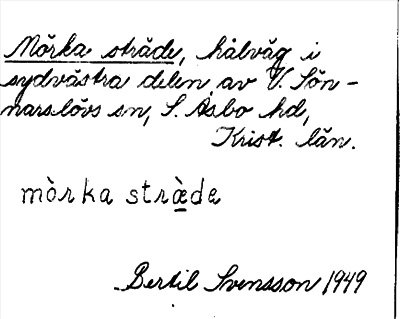 Mörka sträde, hålväg i
sydvästra delen av V. Sön-
narslövs sn, S. Åsbo hd,
Krist. län.
mòrka strà̲de
Bertil Svensson 1949